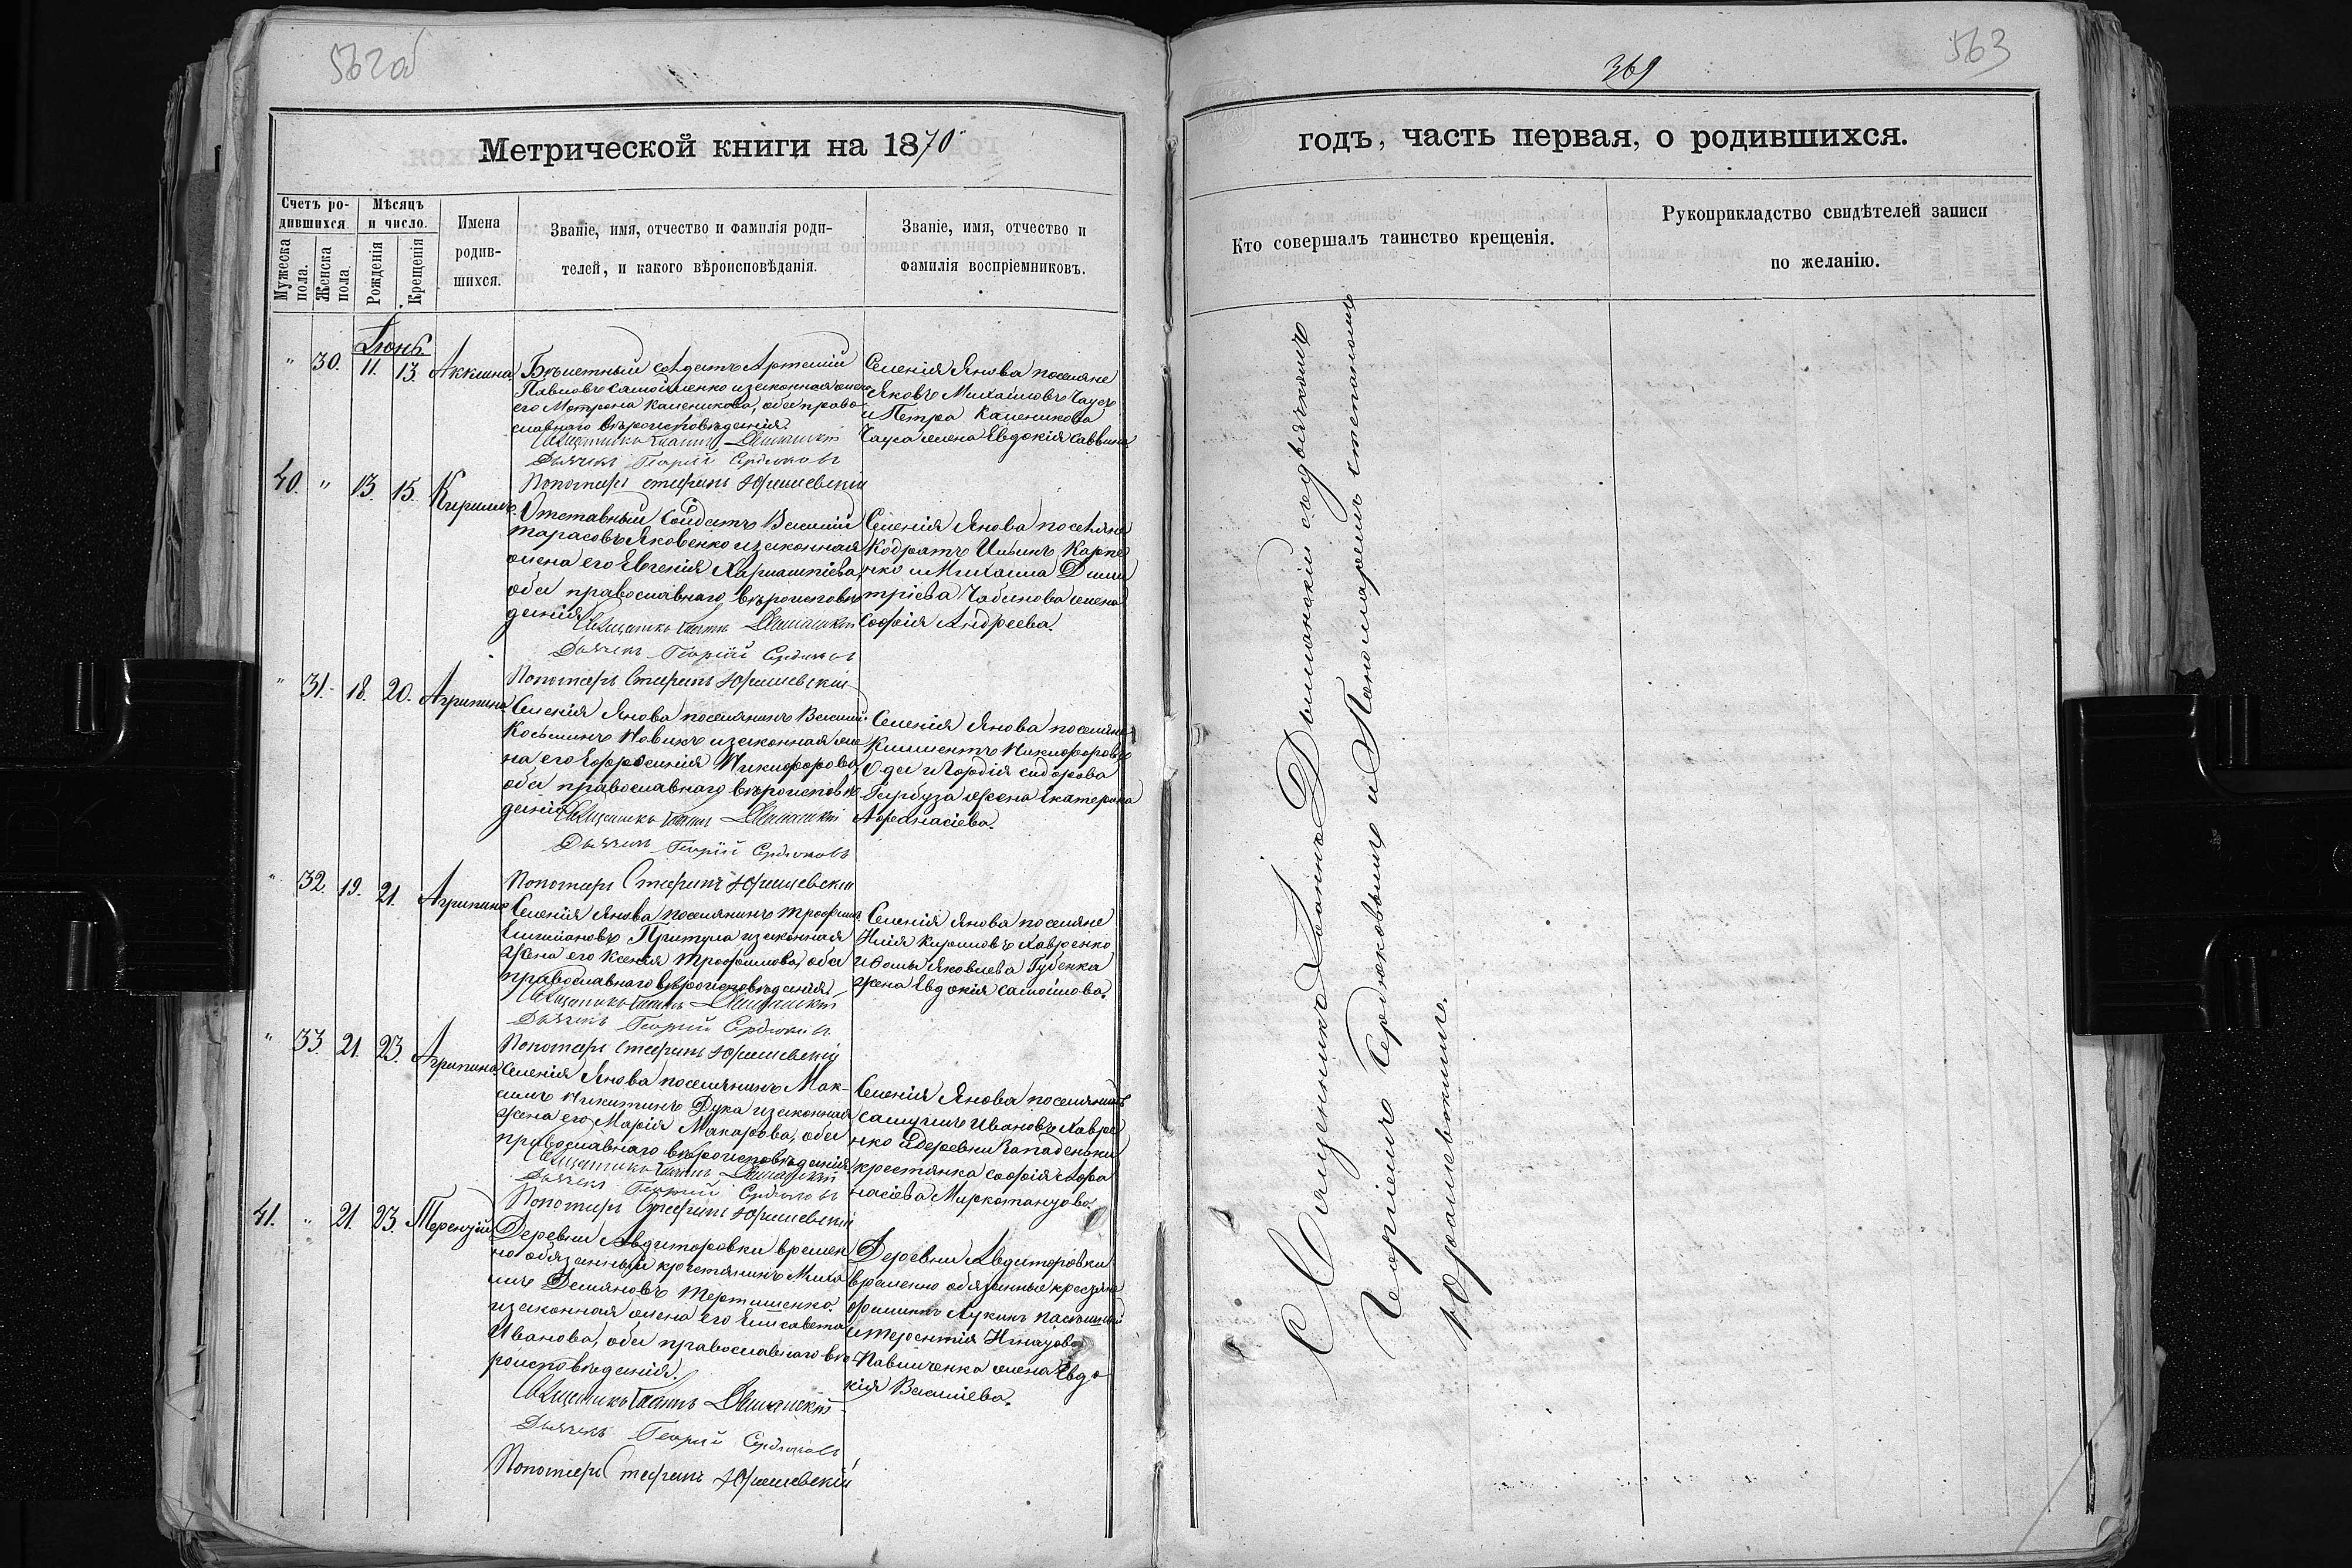 562 об
Метрической книги на 1870
Счетъ ро-
дившихся.
Мѣсяцъ
и число.
Мужеска
пола.
Женска
пола.
Рожденія
Крещенія
Имена
родив-
шихся.
Званіе, имя, отчество и фамилія роди-
телей, и какого вѣроисповѣданія.
Званіе, имя, отчество и
фамилія воспріемниковъ.
Іюнь
" 30. 11. 13. Акилина
солдатъ Артемій
Павловъ Самойленко и законная жена
его Матрона Каленикова, оба право-
славнаго вѣроисповѣданія.
Священникъ Іоаннъ
Дьячекъ Георгій Сердюковъ
Пономарь Стефанъ Юрашевскій
Селенія Янова поселяне
Яковъ Михайловъ Чаусъ
и Петра Каленикова
Чауса жена Евдокія Саввина
40. " 13. 15. Кирилъ.
Отставный Солдатъ Василій
Тарасовъ Яковенко и законная
жена его Евгенія
оба православнаго вѣроисповѣ
данія
Священникъ Іоаннъ
Дьячекъ Георгій Сердюковъ
Пономарь Стефанъ Юрашевскій
Селенія Янова поселяне
Кодратъ Ильинъ Карпе
нко и Михаила Дими
тріева Чабанова жена
Софія Андреева.
" 31. 18. 20. Агрипина
Селенія Янова поселянинъ Василій
Косьминъ Новикъ и законная же
на его Ефросинія Никифорова,
оба православнаго вѣроисповѣ
данія
Священникъ Іоаннъ
Дьячекъ Георгій Сердюковъ
Пономарь Стефанъ Юрашевскій
Селенія Янова поселяне
Климентъ Никифоровъ
и Гордія Сидорова
Гарбуза жена Екатерина
Афанасіева.
" 32. 19. 21. Агрипина
Селенія Янова поселянинъ Трофимъ
Емиліановъ Притула и законная
жена его Ксенія Трофимова, оба
православнаго вѣроисповѣданія
Священникъ Іоаннъ
Дьячекъ Георгій Сердюковъ
Пономарь Стефанъ Юрашевскій
Селенія Янова поселяне
Илія Кириловъ Хавренко
и Фомы Яковлева Губенка
жена Евдокія Самойлова.
" 33. 21. 23. Агрипина
Селенія Янова поселянинъ Мак-
симъ Никитинъ Дука и законная
жена его Марія Макарова, оба
православнаго вѣроисповѣданія
Священникъ Іоаннъ
Дьячекъ Георгій Сердюковъ
Пономарь Стефанъ Юрашевскій
Селенія Янова поселянинъ
Самуилъ Ивановъ Хавре
нко деревни Западеньки
крестянка Софія Афа
насіева
41. " 21. 23. Терентій
Деревни Авдиторовки времен
но обязанный крестянинъ Миха
илъ Демяновъ Тертишенко
и законная жена его Елисавета
Иванова, оба православнаго вѣ
роисповѣданія.
Священникъ Іоаннъ
Дьячекъ Георгій Сердюковъ
Пономарь Стефанъ Юрашевскій
Деревни Авдиторовки
временно обязанные крестяне
Филипъ Лукинъ
и Терентія
Павличенка жена Евдо
кія Василіева.
369
563
годъ, часть первая, о родившихся.
Кто совершалъ таинство крещенія.
Рукоприкладство свидѣтелей записи
по желанію.
Священникъ Іоаннъ Домонскій съ дьячкомъ
Георгіемъ Сердюковымъ и Пономаремъ Стефаномъ
Юрашевскимъ.